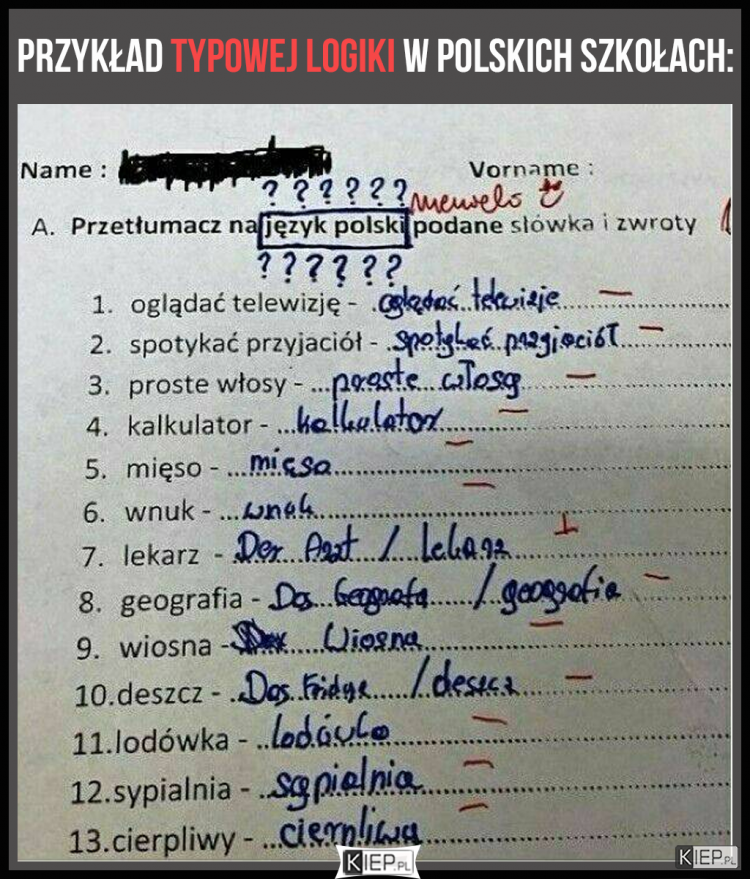 PRZYKŁAD TYPOWEJ LOGIKI W POLSKICH SZKOŁACH:
Name : Vorname :
? ? ? ? ? ?
A. Przetłumacz na język polski podane słówka i zwroty
? ? ? ? ? ?
1. oglądać telewizję - oglądać telewizje
2. spotykać przyjaciół - spotykać przyjaciół
3. proste włosy - proste włosy
4. kalkulator - kalkulator
5. mięso - mięso
6. wnuk - wnuk
7. lekarz - Der Arzt / lekarz
8. geografia - Das / geografia
9. wiosna - Wiosna
10.deszcz - Das Fridge / deszcz
11.lodówka - lodówka
12.sypialnia - sypialnia
13.cierpliwy - cierpliwy
KIEP.PL
KIEP.PL